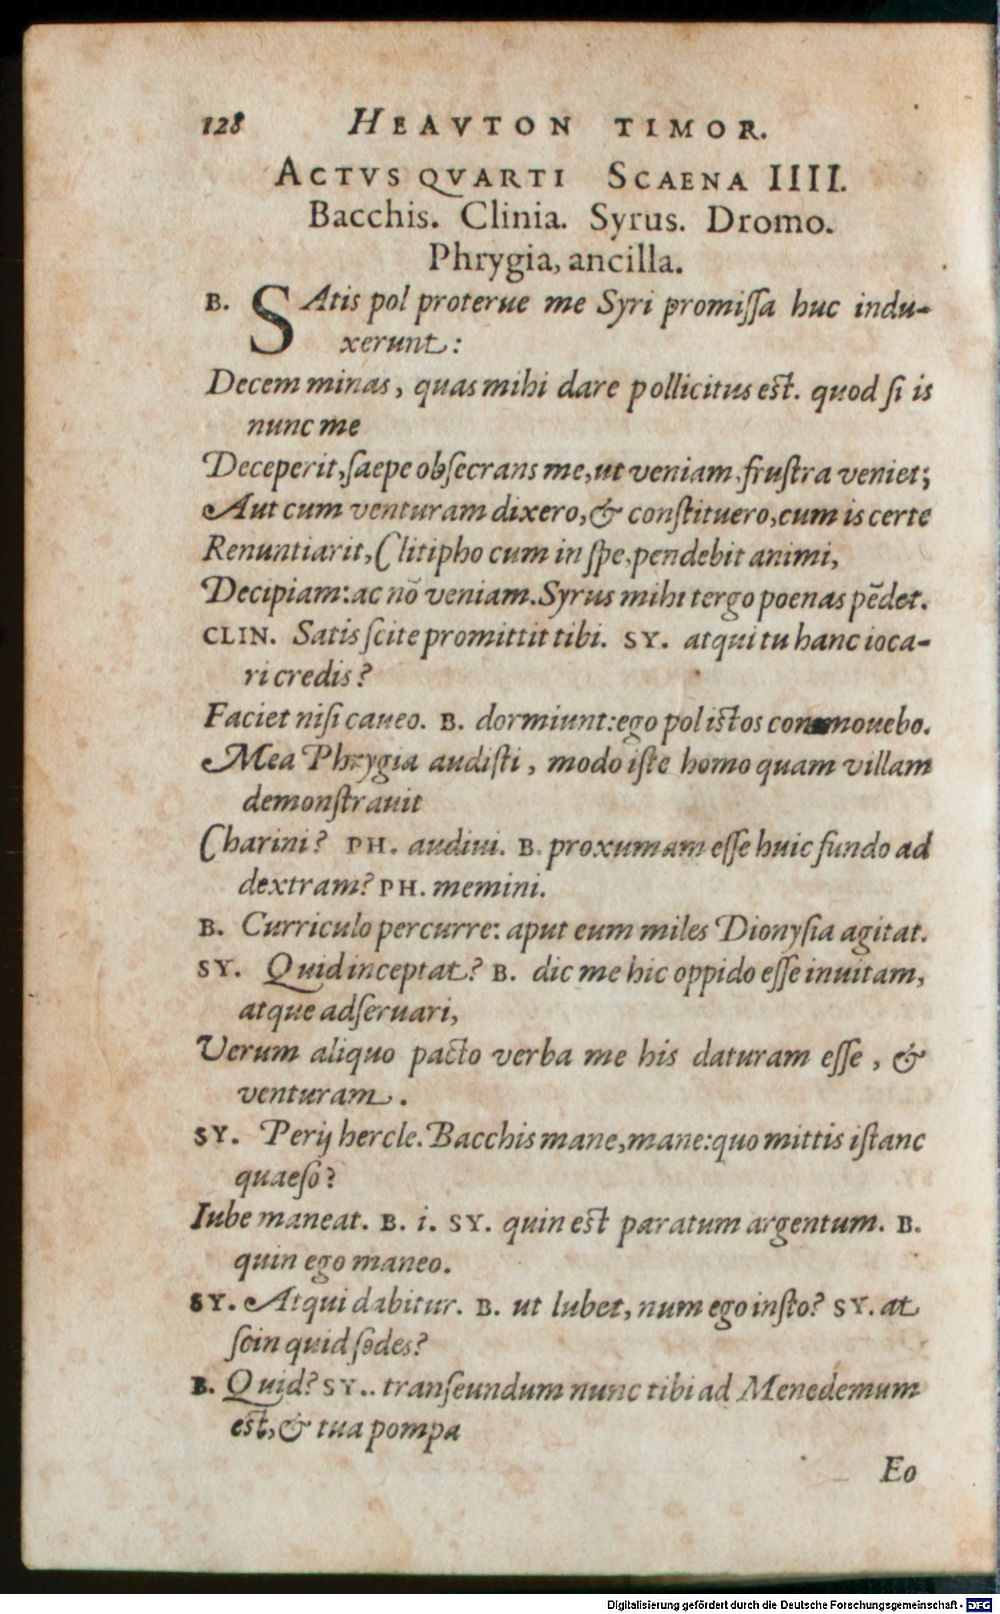 128 HEAVTON TIMOR.
ACTVS QVARTI SCAENA IIII.
Bacchis. Clinia. Syrus. Dromo.
Phrygia, ancilla.
B. SAtis pol proterue me Syri promiſſa huc indu-
xerunt:
Decem minas, quas mihi dare pollicitus est. quod ſi is
nunc me
Deceperit, ſaepe obſecrans me, ut veniam, fruſtra veniet;
Aut cum venturam dixero, & conſtituero, cum is certe
Renuntiarit, Clitipho cum in ſpe, pendebit animi,
Decipiam: ac nō veniam. Syrus mihi tergo poenas pēdet.
CLIN. Satis ſcite promittit tibi. SY. atqui tu hanc ioca-
ri credis?
Faciet niſi caueo. B. dormiunt: ego pol istos commouebo.
Mea Phrygia audiſti, modo iſte homo quam villam
demonſtrauit
Charini? PH. audiui. B. proxumam eſſe huic fundo ad
dextram? PH. memini.
B. Curriculo percurre: aput eum miles Dionyſia agitat.
SY. Quid inceptat? B. dic me hic oppido eſſe inuitam,
atque adſeruari,
Verum aliquo pacto verba me his daturam eſſe, &
venturam.
SY. Perij hercle. Bacchis mane, mane: quo mittis iſtanc
quaeſo?
Iube maneat. B. i. SY. quin est paratum argentum. B.
quin ego maneo.
SY. Atqui dabitur. B. ut lubet, num ego inſto? SY. at
ſcin quid ſodes?
B. Quid? SY.. tranſeundum nunc tibi ad Menedemum
est, & tua pompa
Eo
Digitalisierung gefördert durch die Deutsche Forschungsgemeinschaft - DFG